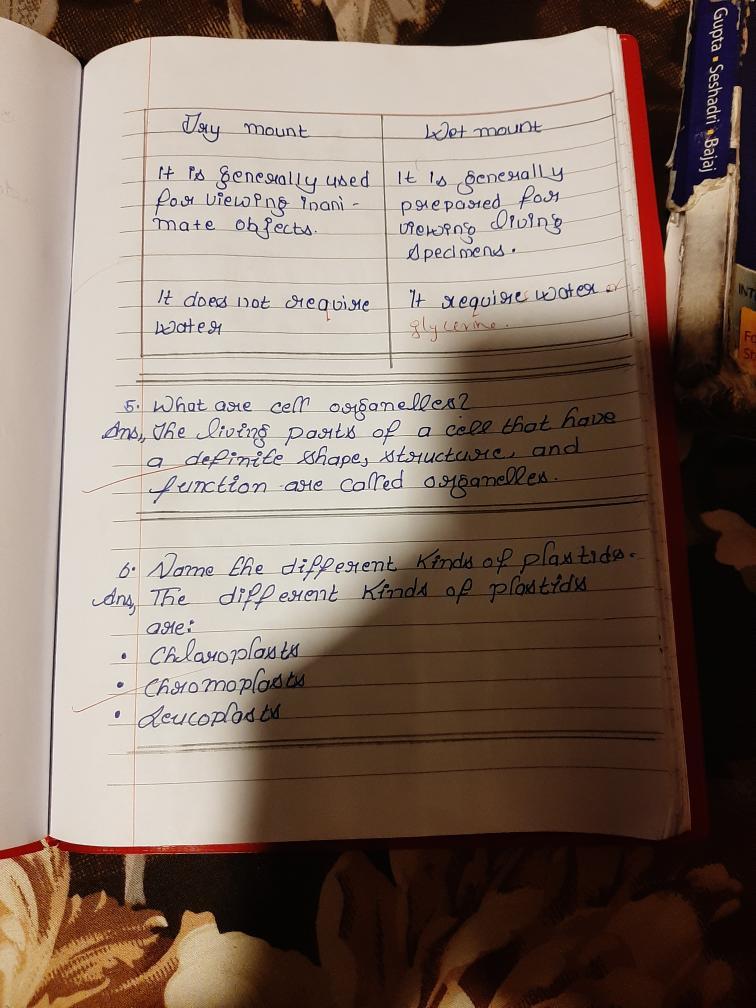 Dry mount
It is generally used
for viewing inani -
mate objects.
It does not require
water
Wet mount
It is generally
prepared for
viewing living
specimens.
It requires water or
glycerine.
5. What are cell organelles?
Ans, The living parts of a cell that have
a definite shape, structure, and
function are called organelles.
6. Name the different kinds of plastids.
Ans, The different kinds of plastids
are:
• Chloroplasts
• Chromoplasts
• Leucoplasts
Gupta • Seshadri • Bajaj